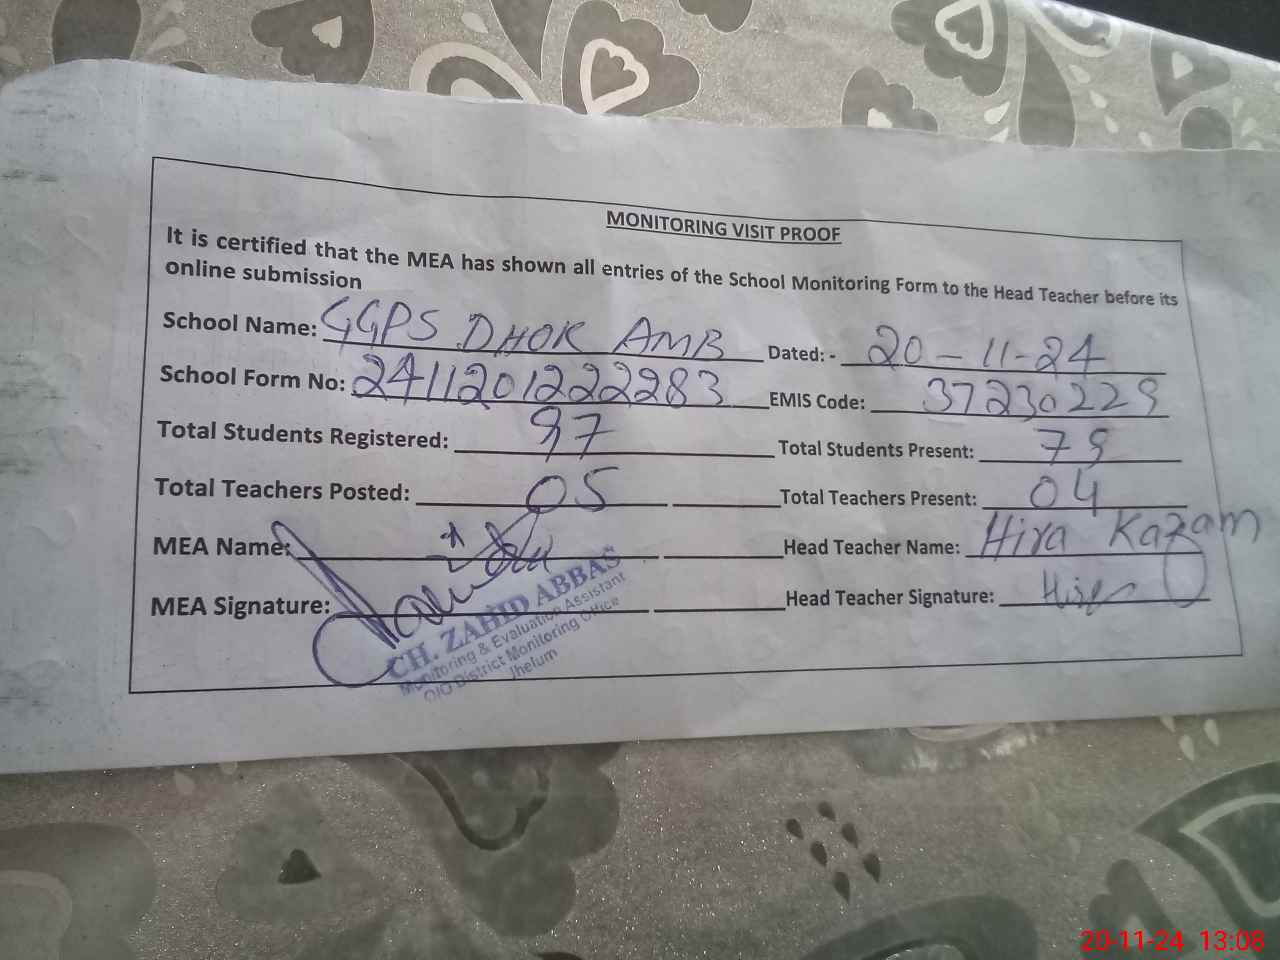 MONITORING VISIT PROOF
It is certified that the MEA has shown all entries of the School Monitoring Form to the Head Teacher before its
online submission
School Name: GGPS DHOK AMB Dated: - 20-11-24
School Form No: 2411201222283 EMIS Code: 37230229
Total Students Registered: 97 Total Students Present: 79
Total Teachers Posted: 05 Total Teachers Present: 04
MEA Name: Head Teacher Name: Hira Kazam
MEA Signature: Head Teacher Signature: Hira
CH. ZAHID ABBAS
Monitoring & Evaluation Assistant
O/O District Monitoring Office
Jhelum
20-11-24 13:08